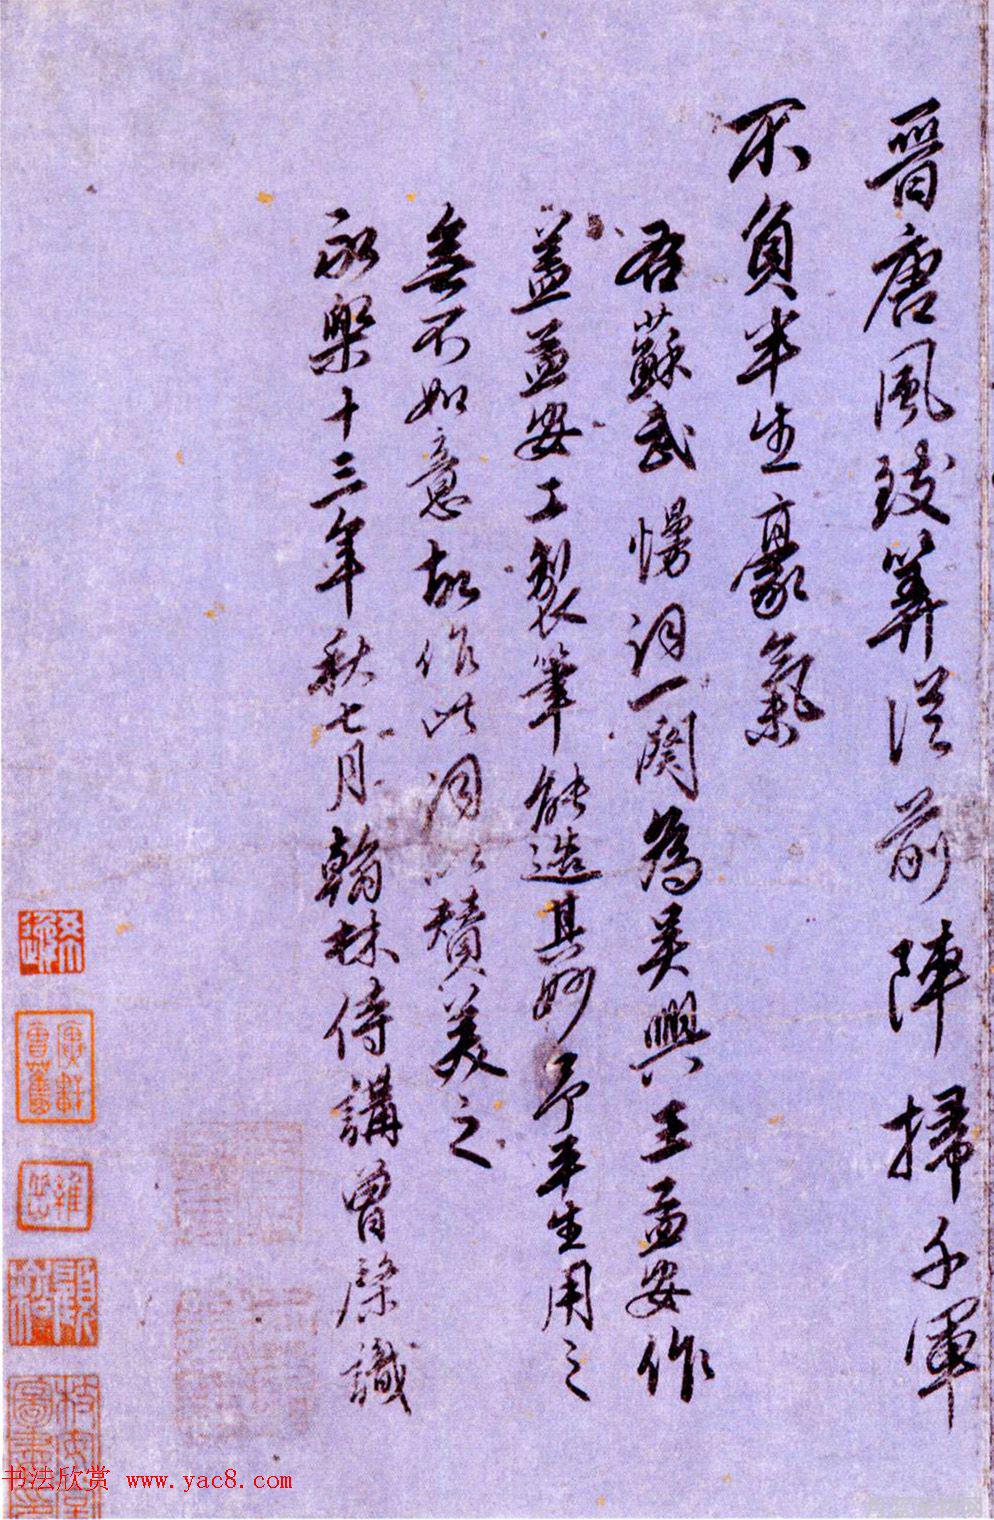 晉唐風致筭從前陣掃千軍
不負半生豪氣
右蘇武慢詞一闋為吴興王孟安作
蓋孟安工製筆能造其妙予平生用之
無不如意故作此詞以贊美之
永樂十三年秋七月翰林侍講曾棨識
书法欣赏 www.yac8.com